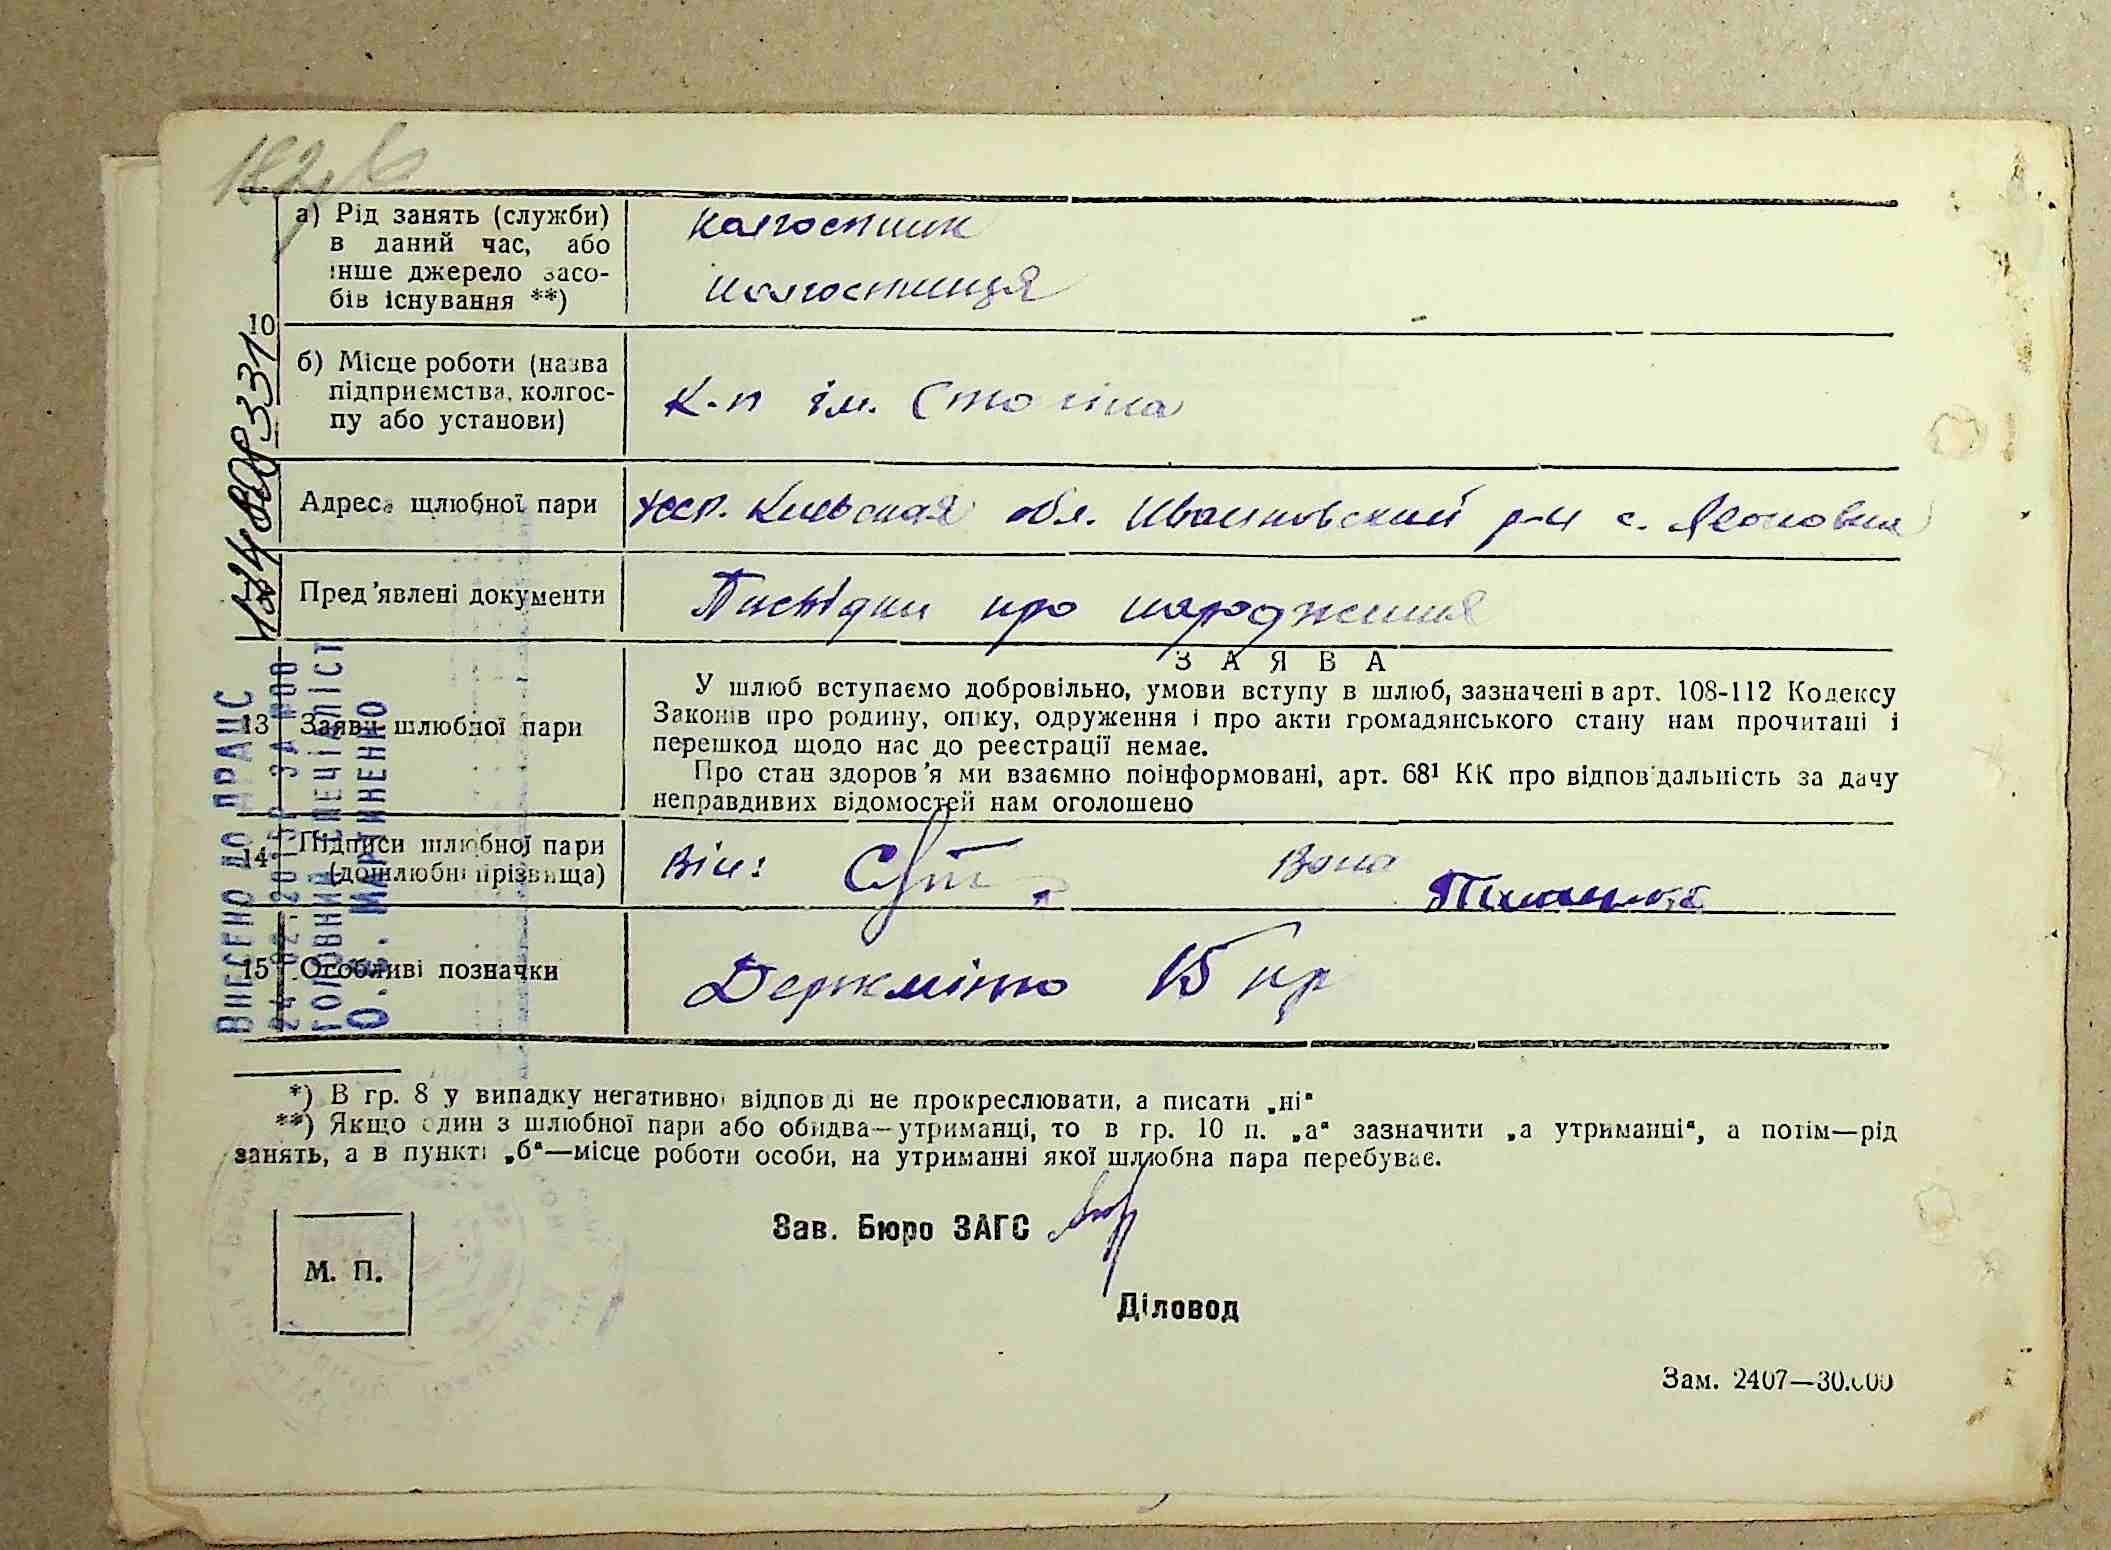 а) Рід занять (служби)
в даний час, або
інше джерело засо-
бів існування **)
колгоспник
колгоспниця
10
б) Місце роботи (назва
підприємства, колгос-
пу або установи)
к-п ім. Сталіна
Адреса шлюбної пари
УССР. Киевская обл. Иванковский р-н с.
Пред'явлені документи
про народження
З А Я В А
13
Заяви шлюбної пари
У шлюб вступаємо добровільно, умови вступу в шлюб, зазначені в арт. 108-112 Кодексу
Законів про родину, опіку, одруження і про акти громадянського стану нам прочитані і
перешкод щодо нас до реєстрації немає.
Про стан здоров'я ми взаємно поінформовані, арт. 68¹ КК про відповідальність за дачу
неправдивих відомостей нам оголошено
14
Підписи шлюбної пари
(дошлюбні прізвища)
Він:
Вона
15
Особливі позначки
Держмито 15 кр
*) В гр. 8 у випадку негативної відповіді не прокреслювати, а писати „ні"
**) Якщо один з шлюбної пари або обидва—утриманці, то в гр. 10 п. „а" зазначити „а утриманні", а потім—рід
занять, а в пункті „б"—місце роботи особи, на утриманні якої шлюбна пара перебуває.
Зав. Бюро ЗАГС
М. П.
Діловод
Зам. 2407—30.000
ВНЕСЕНО ДО ДРАЦС
ГОЛОВНИЙ СПЕЦІАЛІСТ
О. В. МАРТИНЕНКО